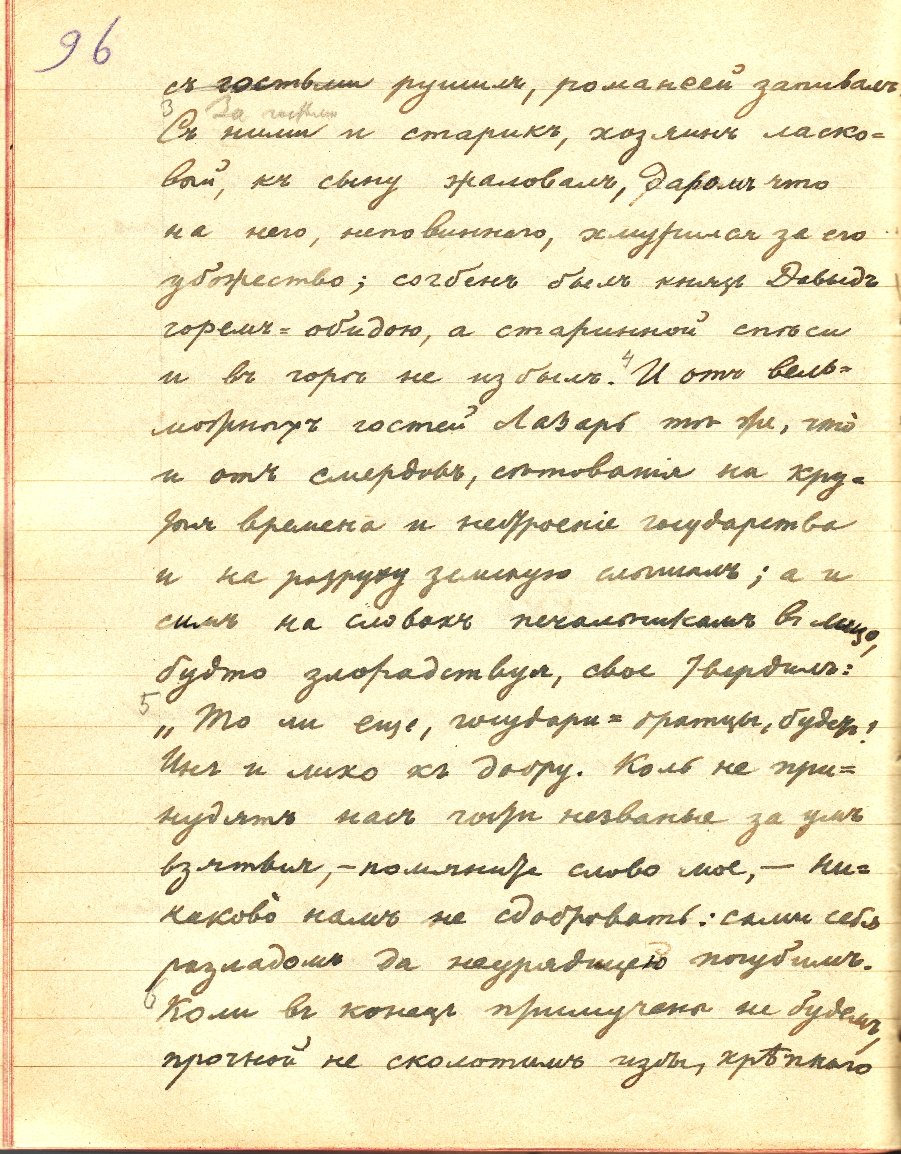 96
съ гостьми рушилъ, романеей запивалъ.
3 За гостьми
Съ ними и старикъ, хозяинъ ласко=
вый, къ сыну жаловалъ, даромъ что
на него, неповиннаго, хмурился за его
убожество; согбенъ былъ князь Давыдъ
горемъ=обидою, а старинной спѣси
и въ горѣ не избылъ. 4 И отъ вель=
можныхъ гостей Лазарь то же, что
и отъ смердовъ, сѣтованія на кру=
тыя времена и нестроеніе государства
и на разруху земскую слышалъ; а и
симъ на словахъ печальникамъ въ лицо,
будто злорадствуя, свое твердилъ:
5
„То ли еще, государи=братцы, будетъ!
Инъ и лихо къ добру. Коль не при=
нудятъ насъ гости незваные за умъ
взяться, – помяните слово мое, – ни=
какъ намъ не сдобровать: сами себя
разладомъ да неурядицею погубимъ.
6
Коли въ конецъ примучены не будемъ,
прочной не сколотимъ избы, крѣпкаго